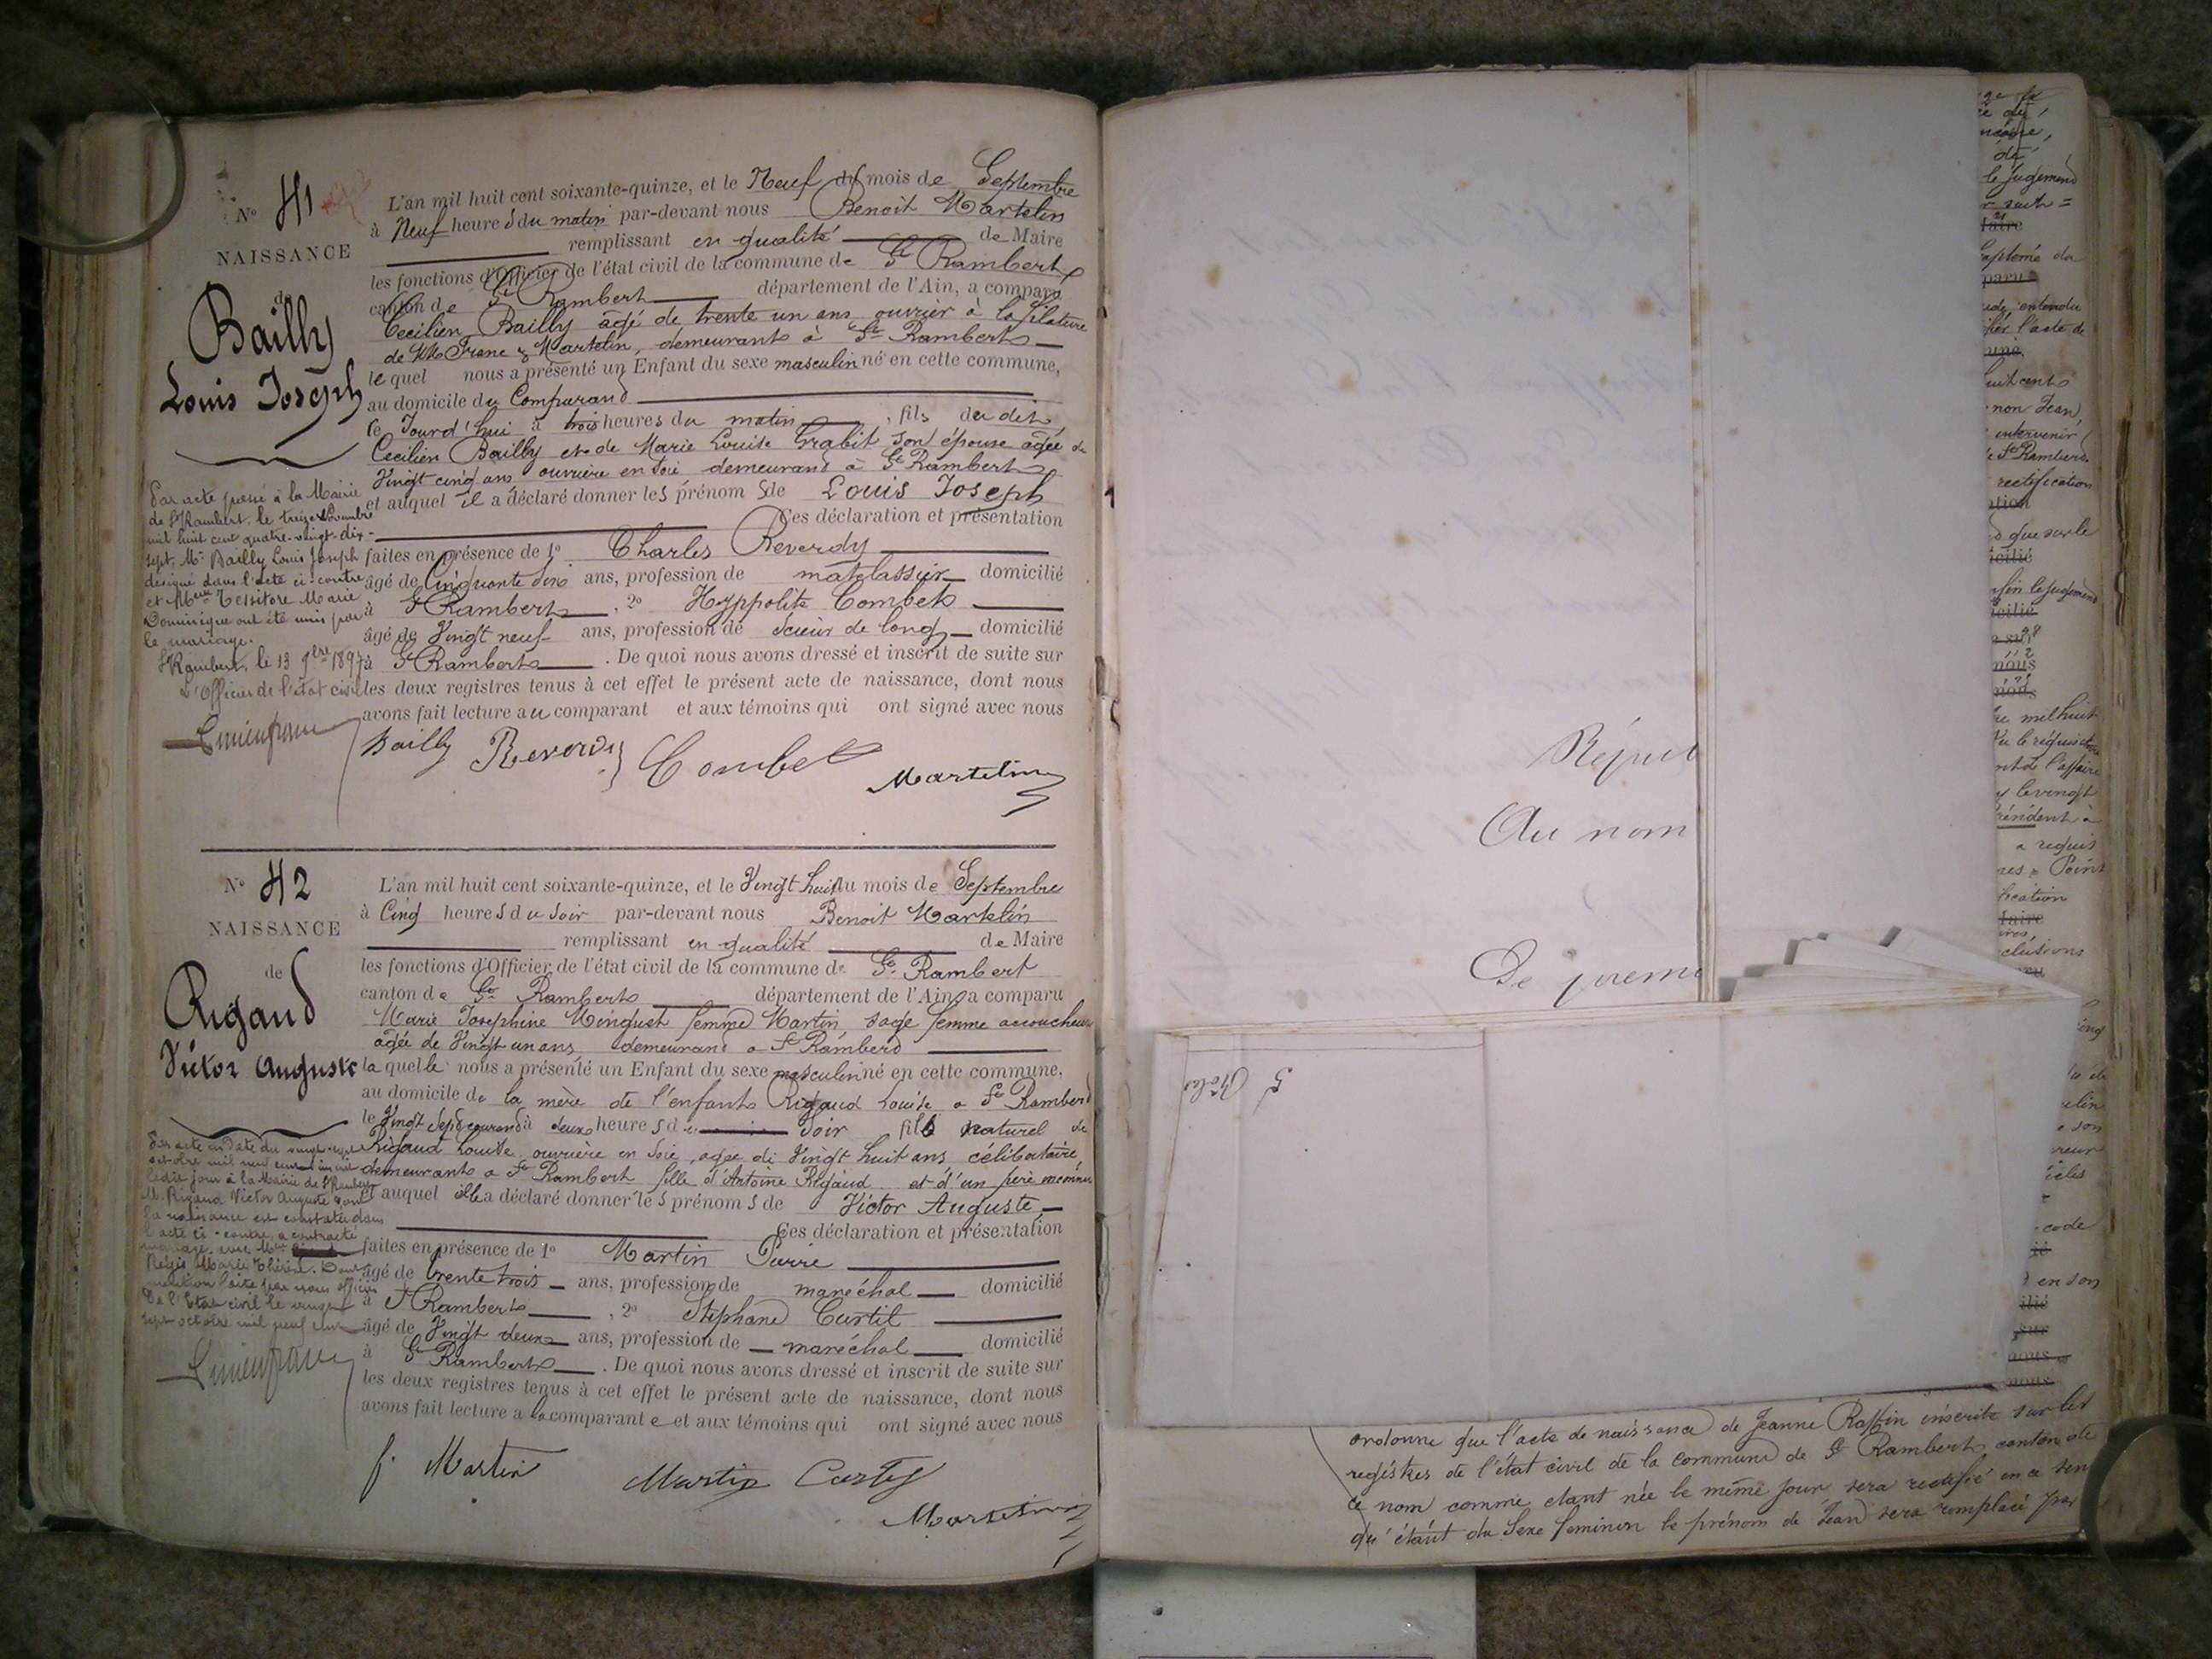 N° 41
NAISSANCE
de
Bailly
Louis Joseph
L'an mil huit cent soixante-quinze, et le Neuf du mois de Septembre
à Neuf heures du matin par-devant nous Benoit Martelin
remplissant en qualité de Maire
les fonctions d'Officier de l'état civil de la commune de St Rambert
canton de St Rambert département de l'Ain, a comparu
Cecilien Bailly âgé de trente un ans ouvrier à la filature
de MM Franc & Martelin, demeurant à St Rambert
lequel nous a présenté un Enfant du sexe masculin né en cette commune,
au domicile du Comparand
le Jourd'hui à trois heures du matin, fils du dit
Cecilien Bailly et de Marie Louise Grabit son épouse agée de
Vingt cinq ans ouvrière en soie demeurand à St Rambert
et auquel il a déclaré donner les prénoms de Louis Joseph
Ces déclaration et présentation
faites en présence de 1° Charles Reverdy
âgé de Cinquante ans, profession de matelassier domicilié
à St Rambert, 2° Hyppolite Combet
âgé de Vingt neuf ans, profession de Scieur de long domicilié
à St Rambert. De quoi nous avons dressé et inscrit de suite sur
les deux registres tenus à cet effet le présent acte de naissance, dont nous
avons fait lecture au comparant et aux témoins qui ont signé avec nous
Bailly Reverdy Combet
Martelin
Par acte passé à la Mairie
de St Rambert, le treize Novembre
mil huit cent quatre-vingt-dix-
sept, Mr Bailly Louis Joseph
désigné dans l'acte ci-contre
et Melle Tessitore Marie
Dominique ont été unis par
le mariage.
St Rambert, le 13 9bre 1897
L'Officier de l'état civil
N° 42
NAISSANCE
de
Rigaud
Victor Auguste
L'an mil huit cent soixante-quinze, et le Vingt huit du mois de Septembre
à Cinq heures du soir par-devant nous Benoit Martelin
remplissant en qualité de Maire
les fonctions d'Officier de l'état civil de la commune de St Rambert
canton de St Rambert département de l'Ain, a comparu
Marie Josephine Minguet femme Martin, sage femme accoucheuse
agée de Vingt un ans demeurand a St Ramberd
laquelle nous a présenté un Enfant du sexe masculin né en cette commune,
au domicile de la mère de l'enfant Rigaud Louise a St Ramberd
le Vingt Sept courand à deux heures du soir fils naturel de
Rigaud Louise ouvrière en soie, agée de Vingt huit ans célibataire
demeurant a St Rambert fille d'Antoine Rigaud et d'un père inconnu
et auquel elle a déclaré donner les prénoms de Victor Auguste
Ces déclaration et présentation
faites en présence de 1° Martin Pierre
âgé de trente trois ans, profession de maréchal domicilié
à St Rambert, 2° Stéphane Curtil
âgé de Vingt deux ans, profession de maréchal domicilié
à St Rambert. De quoi nous avons dressé et inscrit de suite sur
les deux registres tenus à cet effet le présent acte de naissance, dont nous
avons fait lecture a la comparante et aux témoins qui ont signé avec nous
f. Martin Martin
Martelin
Par acte en date du vingt-sept
octobre mil neuf cent
ledit jour à la Mairie de St Rambert
M. Rigaud Victor Auguste dont
la naissance est constatée dans
l'acte ci-contre, a contracté
mariage avec Melle
Régis Marie Thérèse. Dont
mention faite par nous officier
de l'Etat civil le vingt
sept octobre mil neuf cent
Répub
Au nom
De premi
5 Rôles
le jugement
faire
l'acte de
huit cents
non Jean,
intervenir
St Rambert
rectification
que sur le
nous
nous
mil huit
Vu le réquisit
l'affaire
le vingt
président à
a requis
Point
clusions
code
en son
sur
nous
nous
ordonne que l'acte de naissance de Jeanne Raffin inscrite sur les
registres de l'état civil de la commune de St Rambert, canton de
ce nom comme étant née le même jour sera rectifié en ce sens
qu'étant du Sexe feminin le prénom de Jean sera remplacé par